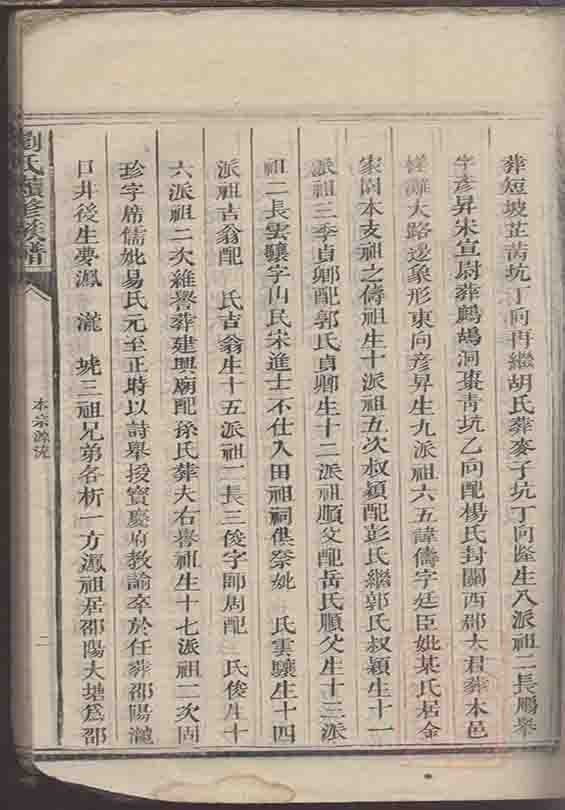 葬短坡芷苪坑丁向再繼胡氏葬麥子坑丁向隆生八派祖二長鵬舉
字彥昇宋宣尉葬鷓鴣洞棗青坑乙向配楊氏封關西郡太君葬本邑
大路邊象形東向彥昇生九派祖六五諱儔字廷臣妣某氏居金
家園本支祖之儔祖生十派祖五次叔穎配彭氏繼郭氏叔穎生十一
派祖三季貞卿配郭氏貞卿生十二派祖順父配岳氏順父生十三派
祖二長雲驤字山民宋進士不仕入田祖祠俱祭妣 氏雲驤生十四
派祖吉翁配 氏吉翁生十五派祖二長三俊字即周配 氏俊生十
六派祖二次維譽葬建興廟配孫氏葬夫右譽祖生十七派祖二次固
珍字席儒妣易氏元至正時以詩舉授寶慶府教諭卒於任葬邵陽瀧
口井後生夢 瀧 三祖兄弟各析一方 祖居邵陽大塘為邵
劉氏續修族譜
本宗源流
二